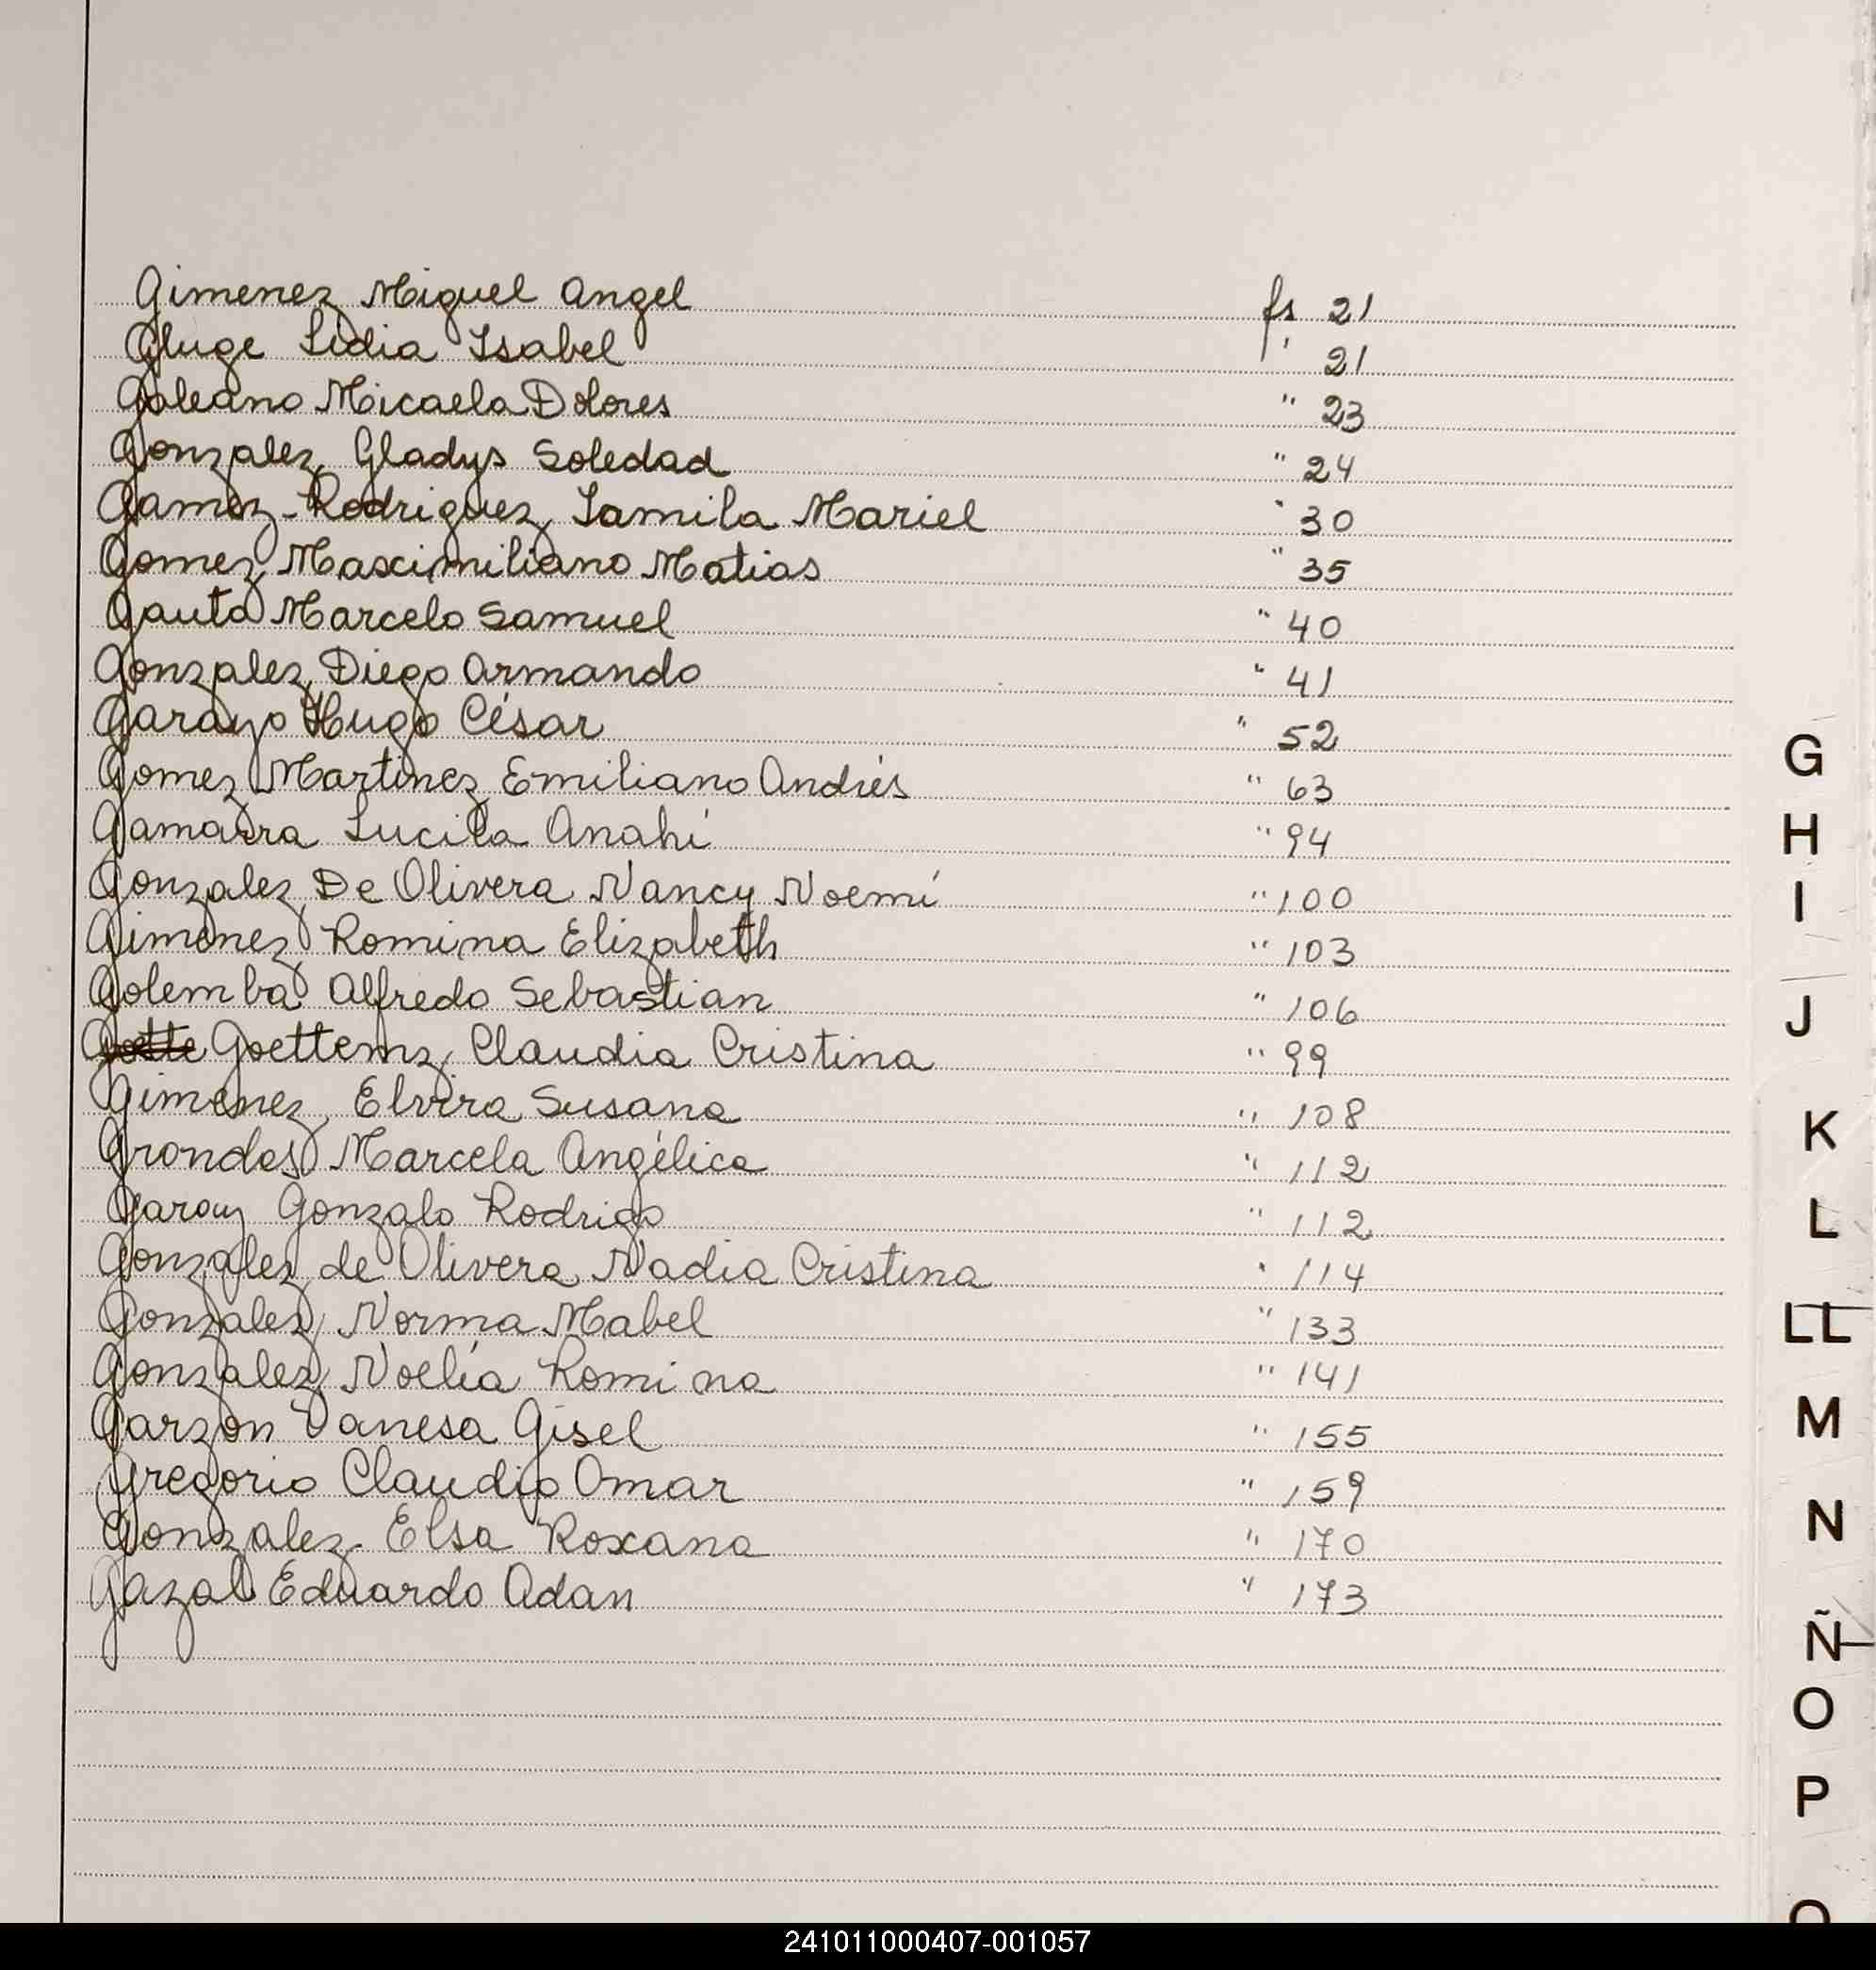 Gimenez Miguel Angel fs 21
Gluge Lidia Isabel " 21
Galeano Micaela Dolores " 23
Gonzalez Gladys Soledad " 24
Gamez-Rodriguez Jamila Mariel " 30
Gomez Maximiliano Matias " 35
Gauta Marcelo Samuel " 40
Gonzalez Diego Armando " 41
Garayo Hugo César " 52
Gomez Martinez Emiliano Andrés " 63
Gamarra Lucila Anahí " 94
Gonzalez De Olivera Nancy Noemí " 100
Gimenez Romina Elizabeth " 103
Golemba Alfredo Sebastian " 106
Goette Goettemz Claudia Cristina " 99
Gimenez Elvira Susana " 108
Grondas Marcela Angélica " 112
Garay Gonzalo Rodrigo " 112
Gonzalez de Olivera Nadia Cristina " 114
Gonzalez Norma Mabel " 133
Gonzalez Noelía Romina " 141
Garzon Vanesa Gisel " 155
Gregorio Claudio Omar " 159
Gonzalez Elsa Roxana " 170
Gazal Eduardo Adan " 173
G
H
I
J
K
L
LL
M
N
Ñ
O
P
241011000407-001057